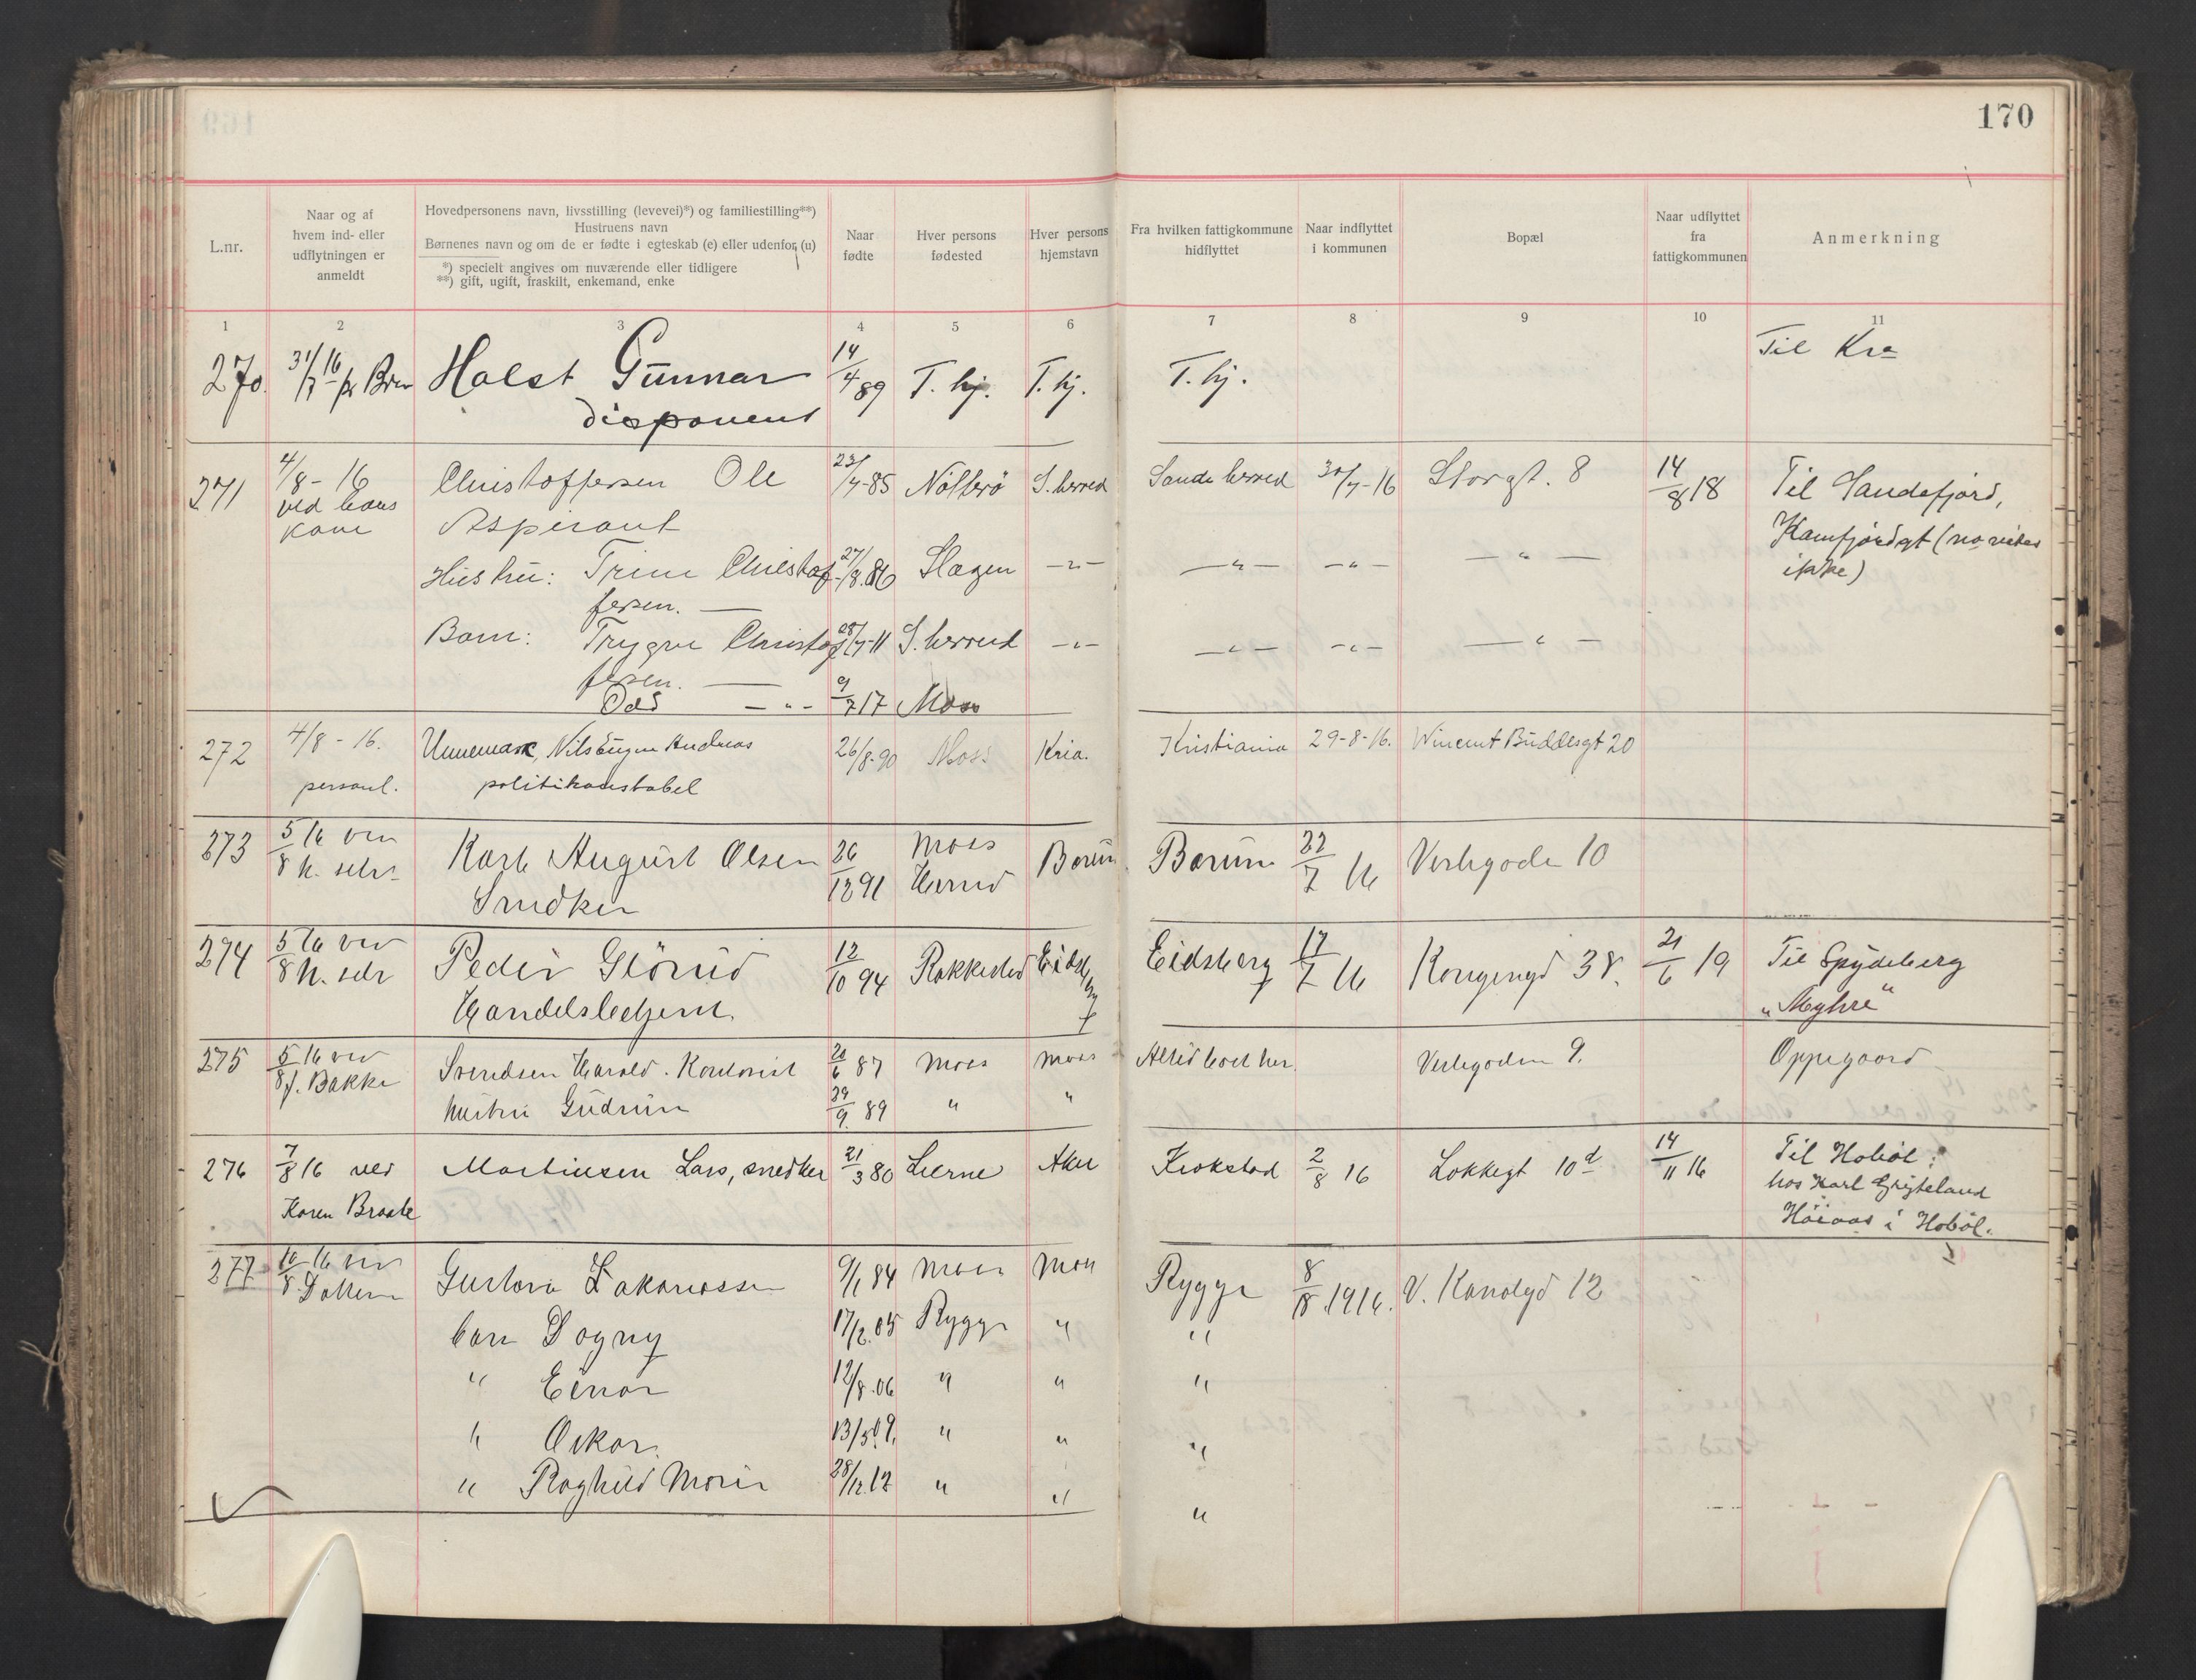 170
L.nr.
Naar og af
hvem ind- eller
udflytningen er
anmeldt
Hovedpersonens navn, livsstilling (levevei)*) og familiestilling**)
Hustruens navn
Børnenes navn og om de er fødte i egteskab (e) eller udenfor (u)
*) specielt angives om nuværende eller tidligere
**) gift, ugift, fraskilt, enkemand, enke
Naar
fødte
Hver persons
fødested
Hver persons
hjemstavn
Fra hvilken fattigkommune
hidflyttet
Naar indflyttet
i kommunen
Bopæl
Naar udflyttet
fra
fattigkommunen
Anmerkning
1 2 3 4 5 6 7 8 9 10 11
270. 31/7 16 Holst Gunnar 14/4 89 T. hj. T. hj. T. hj. Til Kra
disponent
271 4/8 - 16 Christoffersen Ole 23/7-85 Nötterö S. herred Sande herred 30/7-16 Storgt. 8 14/8 18 Til Sandefjord,
ved hans
kone Aspirant Kamfjordgt (no vites
ikke)
Hustru: Trine Christof 27/8.86 Slagen -"- -"- -"- -"-
fersen.
Barn: Trygve Christof 28/7-11 S. herred -"- -"- -"- -"-
fersen.
Odd -"- 9/7 17 Moss
272 4/8 - 16. Unnemark, Nils Eugen Andreas 26/8-90 Moss Kria. Kristiania 29-8-16. Wincent Buddesgt 20
personl. politikonstabel
273 5/8 16 ved Karl August Olsen 26/12 91 Moss Bærum Bærum 22/7 16 Verlegaden 10
h. selv Herred
Snedker
274 5/8 16 ved Peder Glörud 12/10 94 Rakkestad Eidsberg Eidsberg 17/7 16 Kongensgd 38. 21/6 19 Til Spydeberg
h. selv Handelsbetjent "Myhre"
275 5/8 16 ved Svendsen Harald. Kontorist 20/6 87 Moss Moss Altid boet her. Verlegaden 9. Oppegaard
J. Bakke hustru Gudrun 29/9 89 " "
276 7/8 16 ved Martinsen Lars, snedker 21/3 80 Lierne Aker Krokstad 2/8 16 Lokkegt 10d 14/11 16 Til Hobøl:
Karen Braate hos Karl
Höiaas i Hobøl.
277 10/8 16 ved Gustava Zakariassen 9/1 84 Moss Moss Rygge 8/8 1916. V. Kanalgd 12
Datteren
barn Dagny 17/2.05 Rygge " "
" Einar 12/8.06 " " "
" Oskar 13/5 09. " " "
" Raghild Marie 28/12.12 " " "